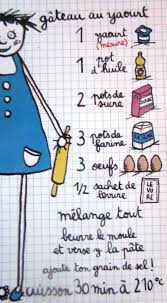 gâteau au yaourt
1 yaourt
(mesure)
1 pot
d'huile
2 pots de
sucre
SUCRE
3 pots de
farine
3 oeufs
1/2 sachet de
levure
LE
VU
RE
mélange tout
beurre le moule
et verse y la pâte
ajoute ton grain de sel!
cuisson 30 min à 210°